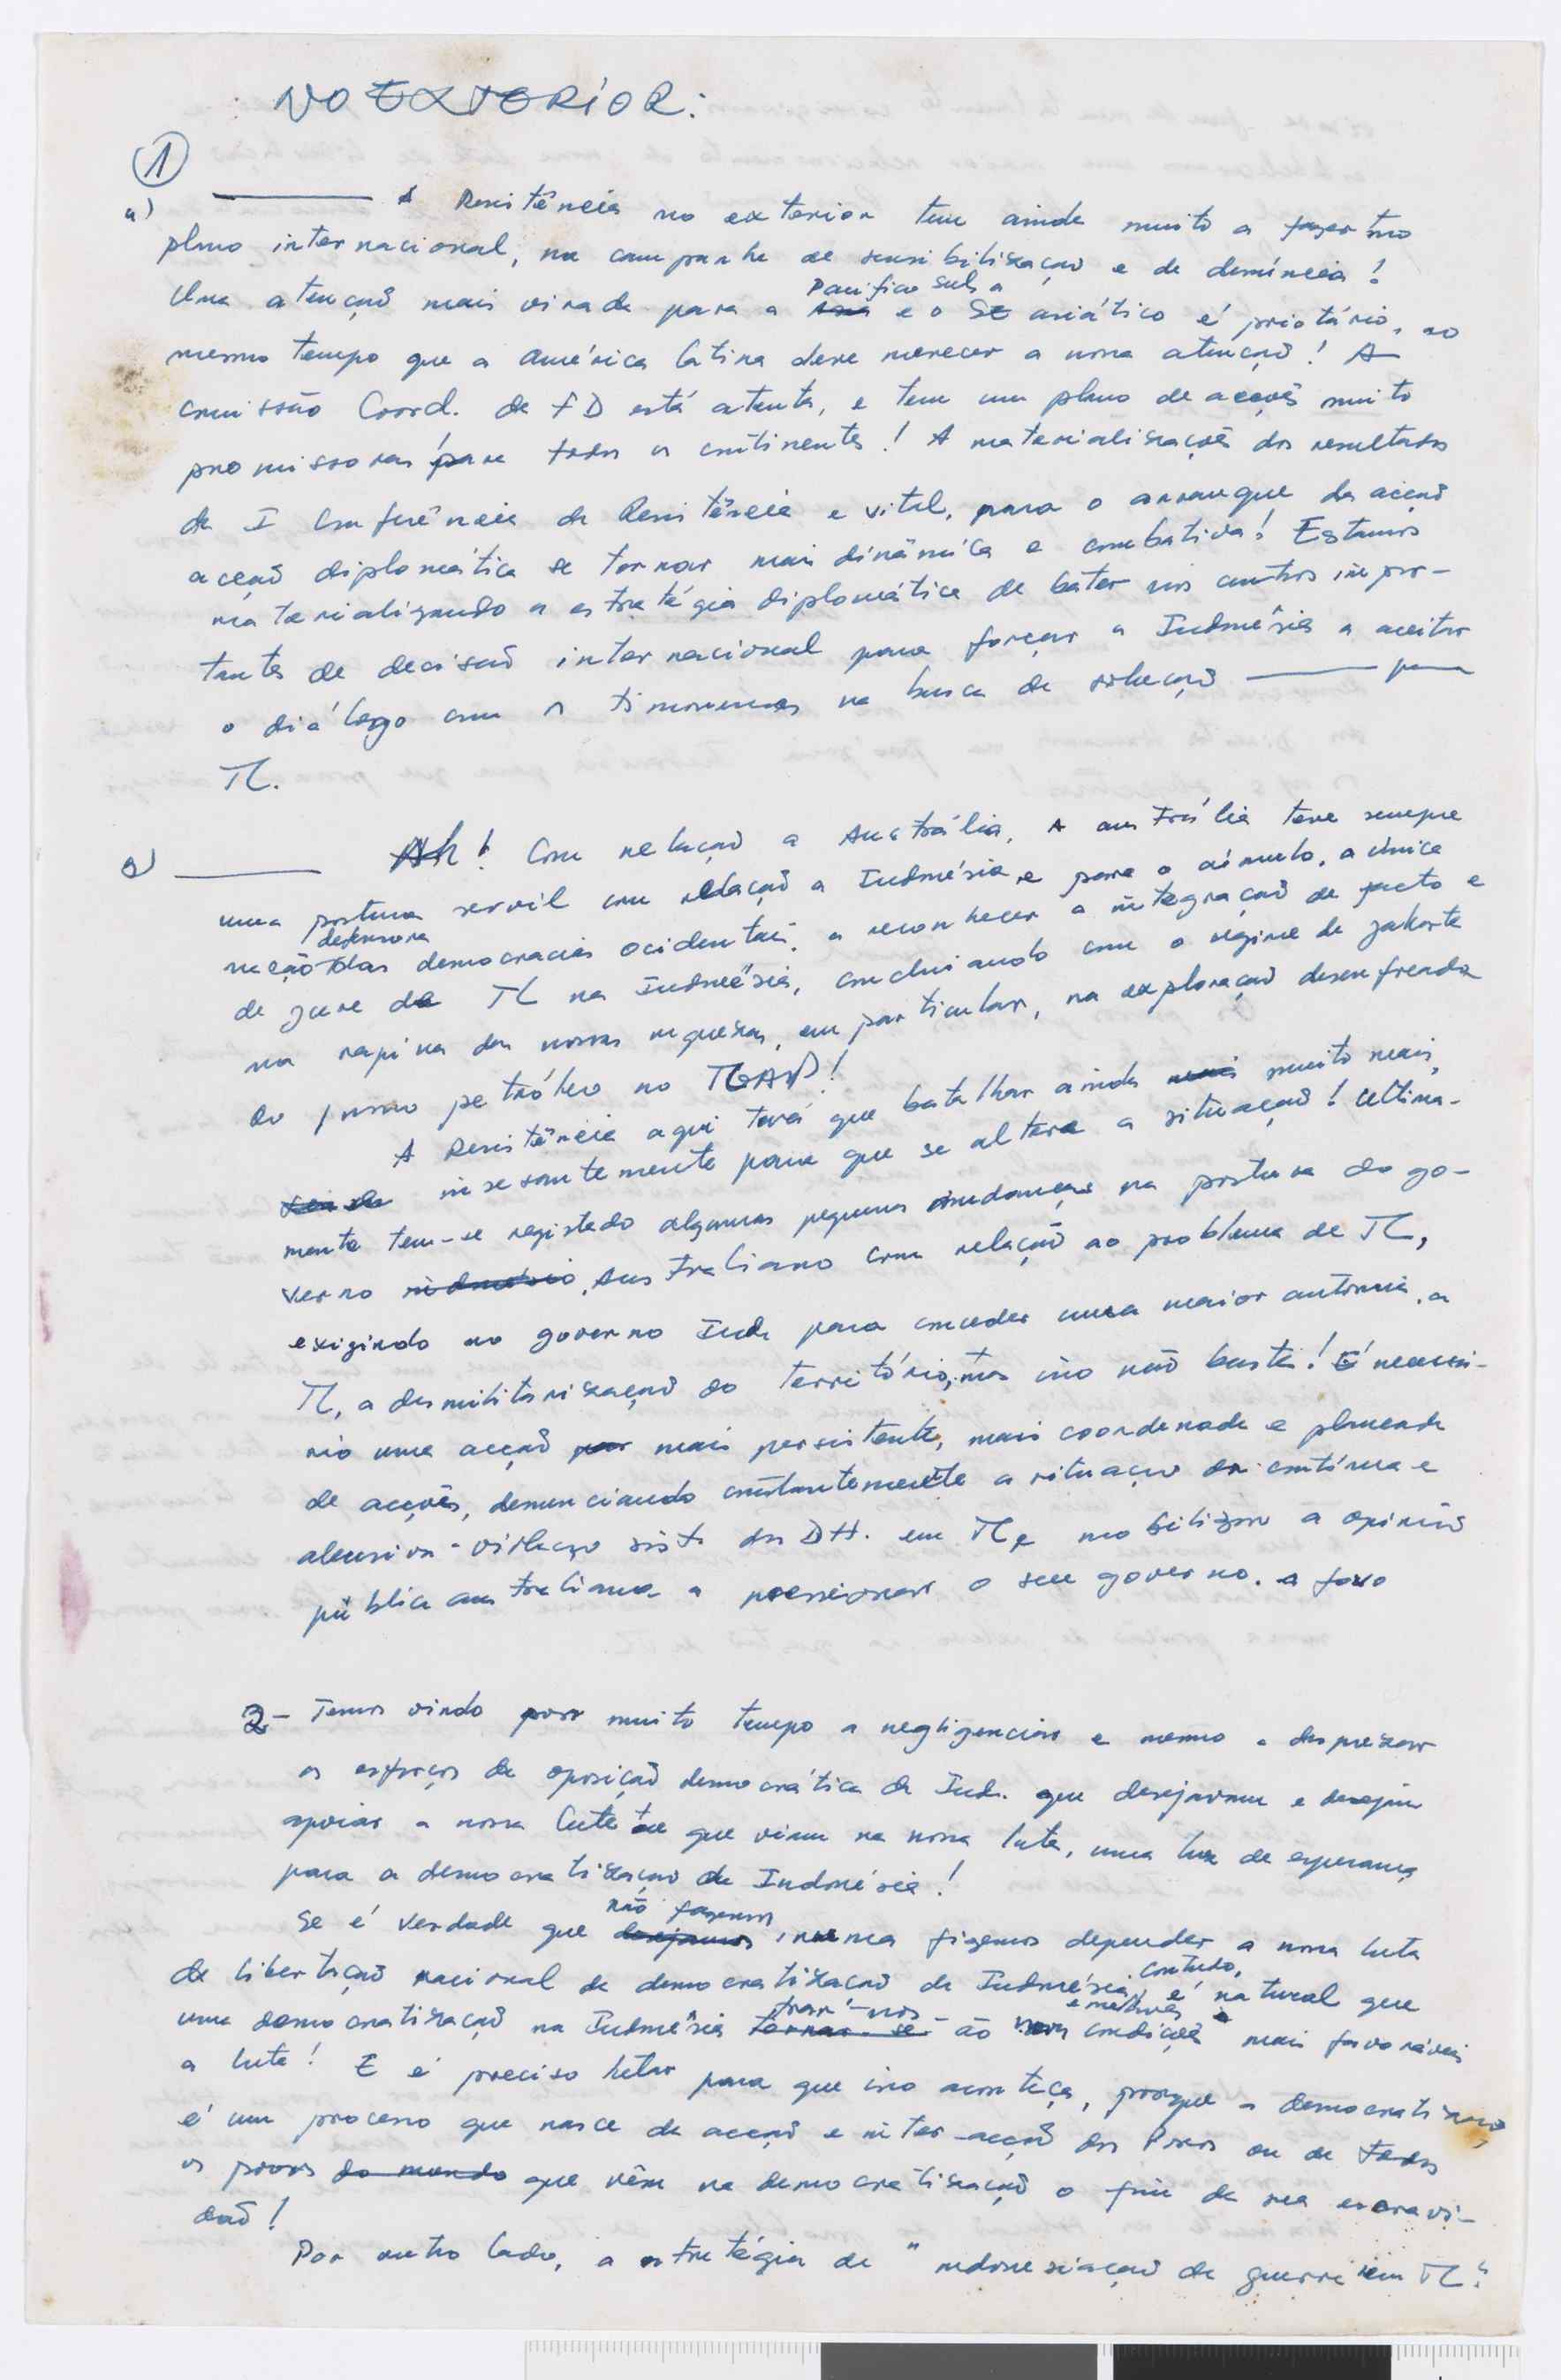 NO EXTERIOR:
1
a) A Resistência no exterior tem ainda muito a fazer no
plano internacional, na campanha de sensibilização e de denúncia!
Uma atenção mais virada para a Asia Pacifico Sul e o SE asiático é priotário, ao
mesmo tempo que a América Latina deve merecer a nossa atenção! A
comissão Coord. da FD está atenta, e tem um plano de acções muito
promissoras para todos os continentes! A materializações dos resultados
da I Conferência da Resistência e vital, para o arranque da acção
acção diplomática se tornar mais dinâmica e combativa! Estamos
materializando a estratégia diplomática de bater nos centros impor-
tantes de decisão internacional para forçar a Indonésia a aceitar
o diálogo com os timorenses na busca de solução para
TL.
Ah! Com relação a Austrália. A Austrália teve sempre
uma postura servil com relação a Indonésia e para o cúmulo, a única
nação defensora das democracias ocidentais, a reconhecer a integração de facto e
de jure de TL na Indonésia, concluiando com o regime de Jakarta
na rapina das nossas riquezas, em particular, na exploração desenfreada
do nosso petróleo no TGAP!
A Resistência aqui terá que batalhar ainda mais muito mais,
insesantemente para que se altere a situação! Ultima-
mente tem-se registado algumas pequenas mudanças na postura do go-
verno indonésio, Australiano com relação ao problema de TL,
exigindo ao governo Ind. para conceder uma maior autonomia, a
TL, a desmilitarização do território, mas isso não basta! É necessá-
rio uma acção mais persistente, mais coordenada e planeada
de acções, denunciando constantemente a situação de contínua e
abusiva violação sist. dos DH. em TL e mobilizar a opinião
pública australiana a pressionar o seu governo. a favor
2- Temos vindo por muito tempo a negligenciar e mesmo a desprezar
os esforços da oposição democrática da Ind. que desejavam e desejam
apoiar a nossa luta e que viam na nossa luta, uma luz de esperança
para a democratização da Indonésia!
Se é verdade que desejamos não fazemos, nunca fizemos depender a nossa luta
de libertação nacional da democratização da Indonésia, contudo, é natural que
uma democratização na Indonésia tornar-se-ão trar-nos-ão condições e melhores mais favoráveis
a luta! E é preciso lutar para que isso aconteça, porque a democratização
é um processo que nasce da acção e inter-acção dos Povos ou de todos
os povos do mundo que vêm na democratização o fim da sua escravi-
dão!
Por outro lado, a estratégia de "indonesiação da guerra em TL"